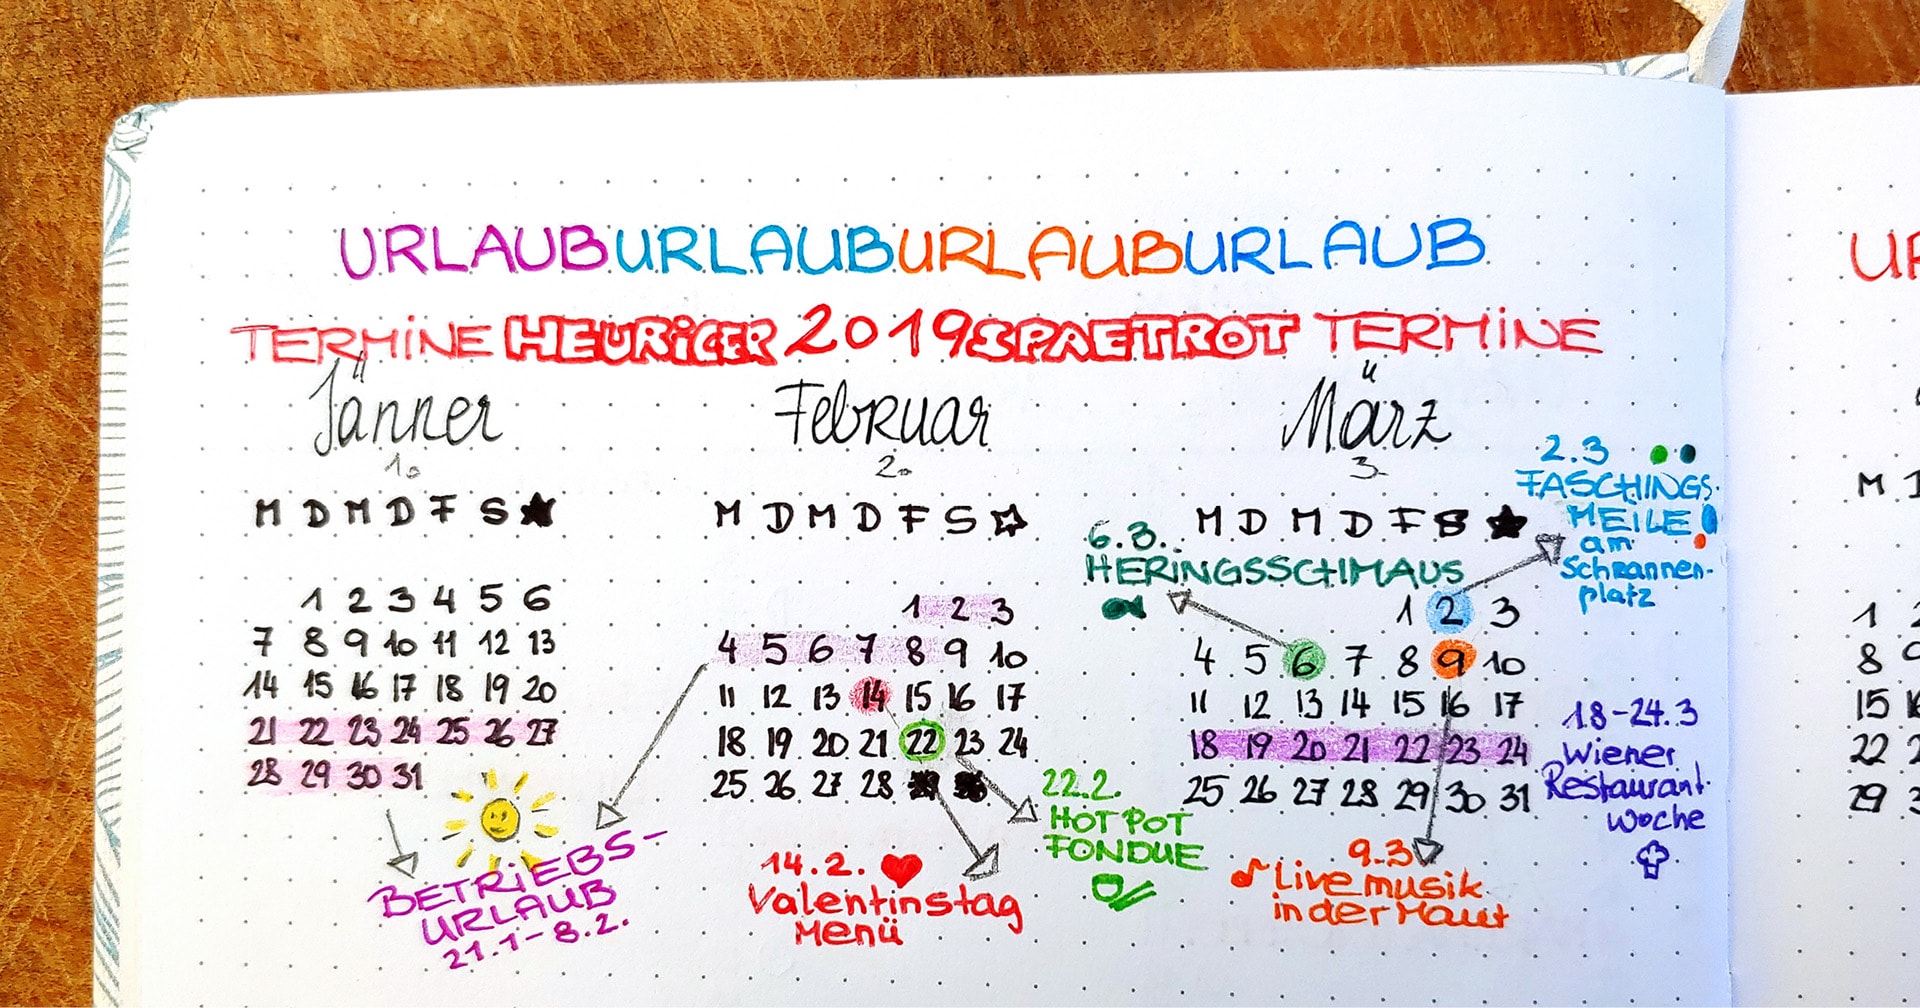 URLAUBURLAUBURLAUBURLAUB
TERMINE HEURIGER 2019 SPAETROT TERMINE
Jänner
1.
M D M D F S
1 2 3 4 5 6
7 8 9 10 11 12 13
14 15 16 17 18 19 20
21 22 23 24 25 26 27
28 29 30 31
BETRIEBS-
URLAUB
21.1-8.2.
Februar
2.
M D M D F S
1 2 3
4 5 6 7 8 9 10
11 12 13 14 15 16 17
18 19 20 21 22 23 24
25 26 27 28
14.2.
Valentinstag
Menü
22.2.
HOT POT
FONDUE
März
3.
M D M D F S
1 2 3
4 5 6 7 8 9 10
11 12 13 14 15 16 17
18 19 20 21 22 23 24
25 26 27 28 29 30 31
6.3.
HERINGSSCHMAUS
2.3
FASCHINGS-
MEILE
am
Schrannen-
platz
18-24.3
Wiener
Restaurant-
woche
9.3
Livemusik
in der Maut
UR
M D
1 2
8 9
15 1
22 2
29 3